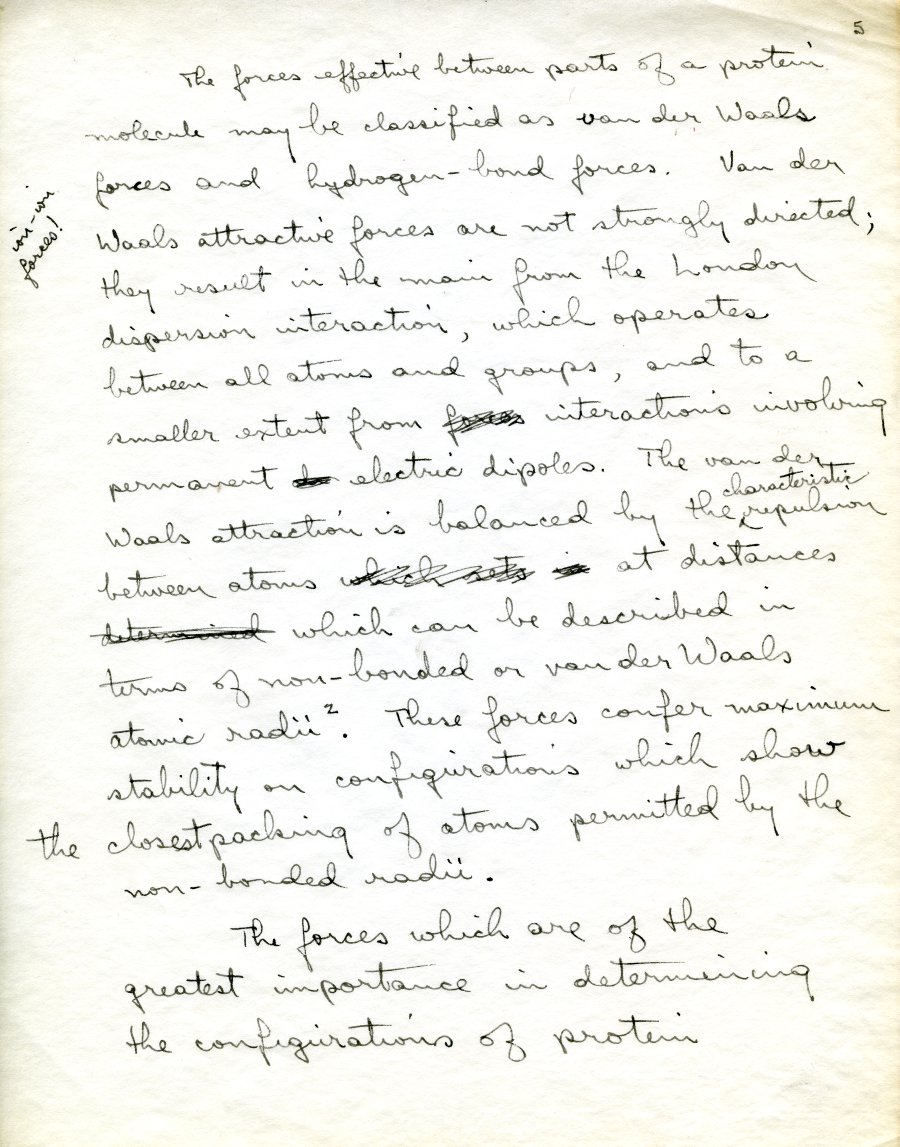 5
The forces effective between parts of a protein
molecule may be classified as van der Waals
forces and hydrogen-bond forces. Van der
ion-ion
forces!
Waals attractive forces are not strongly directed;
they result in the main from the London
dispersion interaction, which operates
between all atoms and groups, and to a
smaller extent from interactions involving
permanent electric dipoles. The van der
characteristic
Waals attraction is balanced by the ‸ repulsion
between atoms which sets is at distances
determined which can be described in
terms of non-bonded or van der Waals
atomic radii². These forces confer maximum
stability on configurations which show
the closest packing of atoms permitted by the
non-bonded radii.
The forces which are of the
greatest importance in determining
the configurations of protein